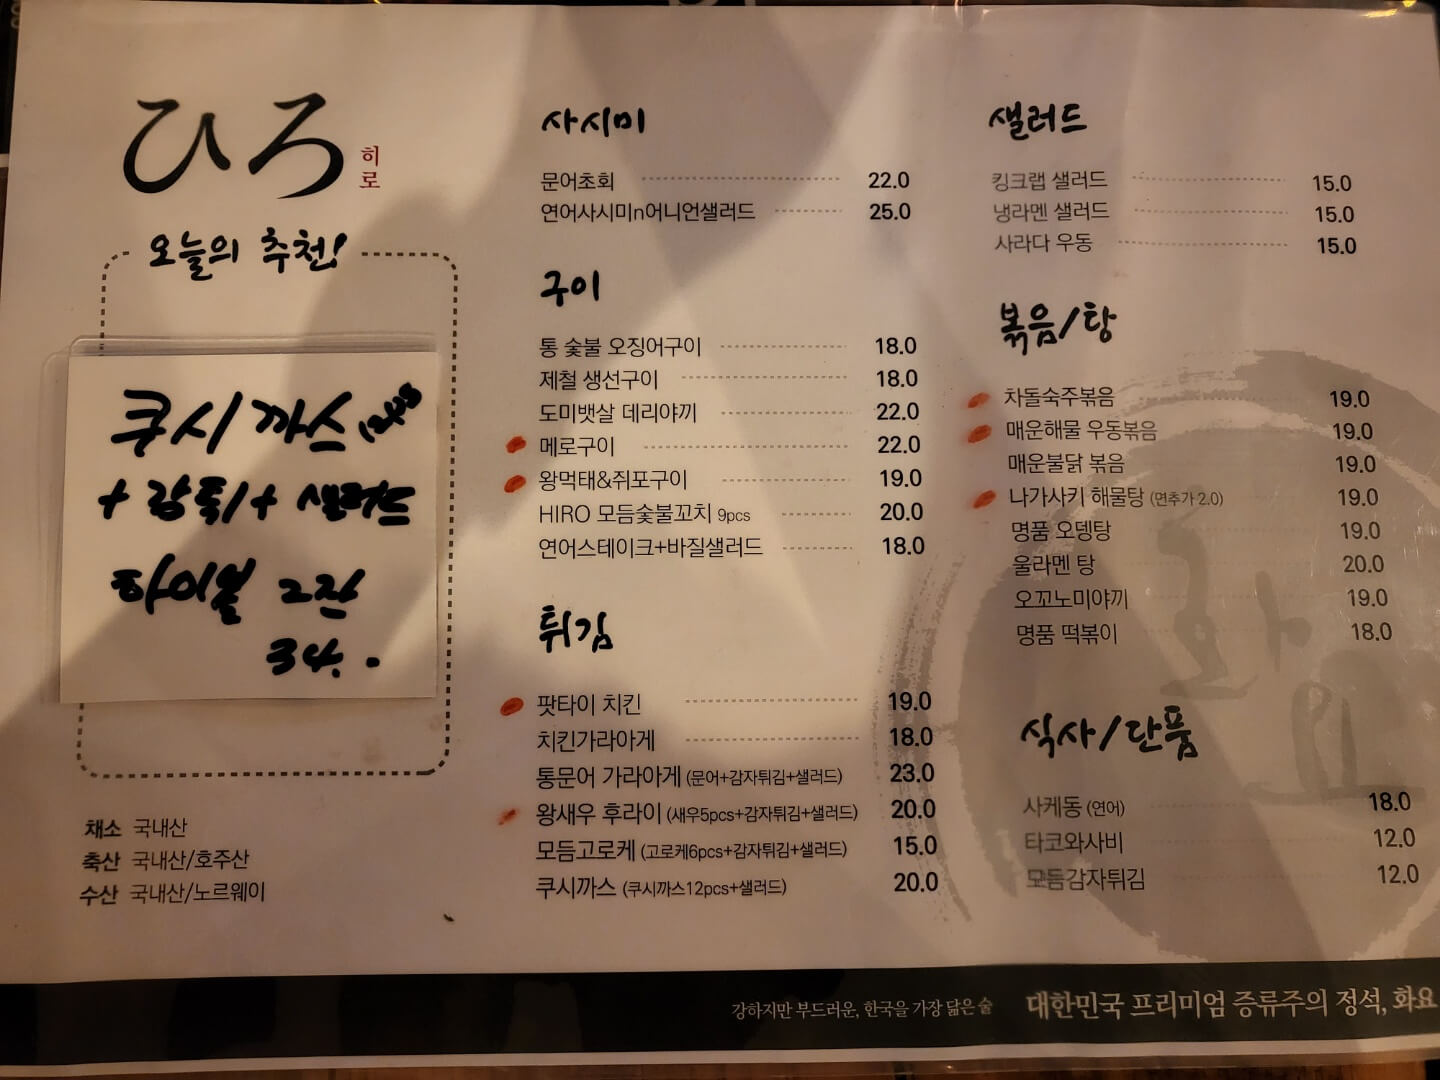 ひろ
히로
오늘의 추천!
쿠시까스 12pcs
+ 감튀 + 샐러드
하이볼 2잔
34.
채소 국내산
축산 국내산/호주산
수산 국내산/노르웨이
사시미
문어초회 22.0
연어사시미n어니언샐러드 25.0
구이
통 숯불 오징어구이 18.0
제철 생선구이 18.0
도미뱃살 데리야끼 22.0
메로구이 22.0
왕먹태&쥐포구이 19.0
HIRO 모듬숯불꼬치 9pcs 20.0
연어스테이크+바질샐러드 18.0
튀김
팟타이 치킨 19.0
치킨가라아게 18.0
통문어 가라아게 (문어+감자튀김+샐러드) 23.0
왕새우 후라이 (새우5pcs+감자튀김+샐러드) 20.0
모듬고로케 (고로케6pcs+감자튀김+샐러드) 15.0
쿠시까스 (쿠시까스12pcs+샐러드) 20.0
샐러드
킹크랩 샐러드 15.0
냉라멘 샐러드 15.0
사라다 우동 15.0
볶음/탕
차돌숙주볶음 19.0
매운해물 우동볶음 19.0
매운불닭 볶음 19.0
나가사키 해물탕 (면추가 2.0) 19.0
명품 오뎅탕 19.0
울라멘 탕 20.0
오꼬노미야끼 19.0
명품 떡볶이 18.0
식사/단품
사케동 (연어) 18.0
타코와사비 12.0
모듬감자튀김 12.0
화요
강하지만 부드러운, 한국을 가장 닮은 술 대한민국 프리미엄 증류주의 정석, 화요